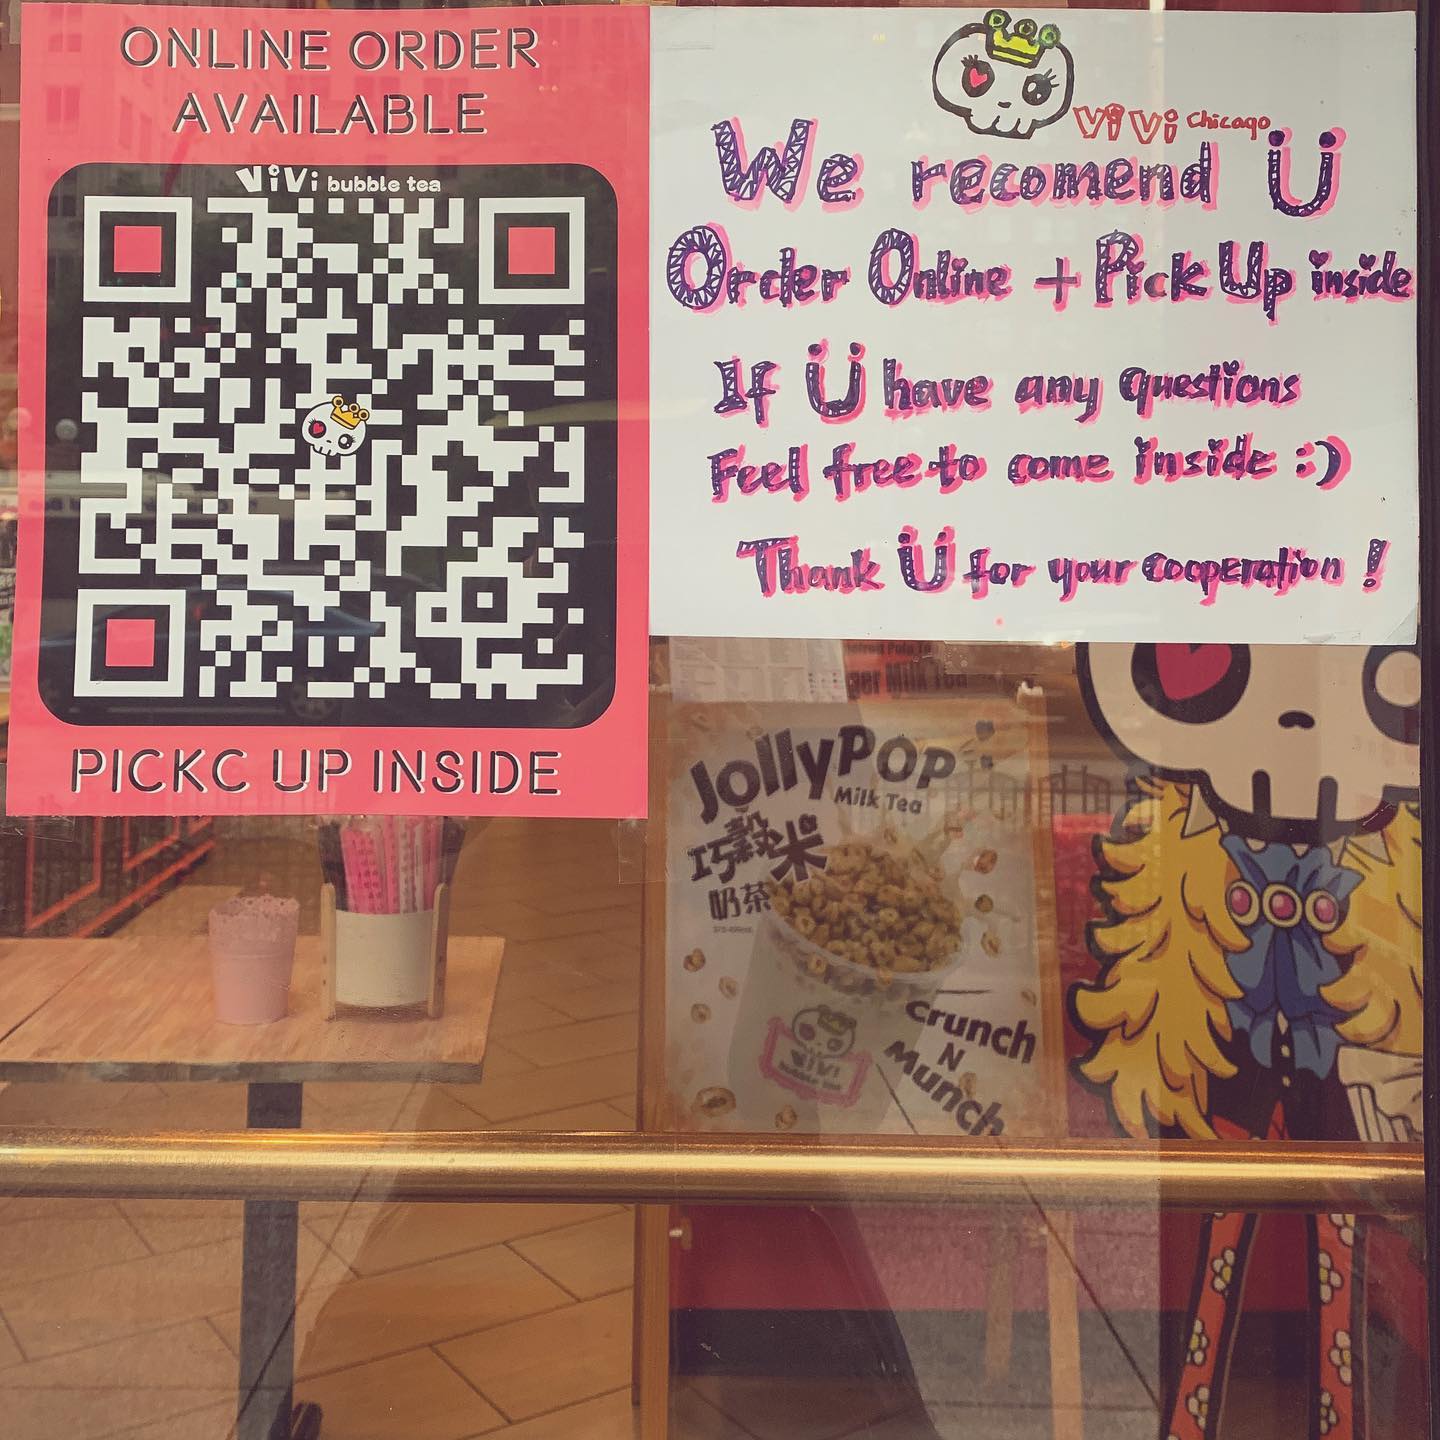 ONLINE ORDER
AVAILABLE
ViVi bubble tea
PICKC UP INSIDE
ViVi Chicago
We recomend Ü
Order Online + Pick Up inside
If Ü have any questions
Feel free to come inside :)
Thank Ü for your cooperation !
JollyPOP
Milk Tea
巧穀米
奶茶
Crunch
N
Munch
ViVi
bubble tea